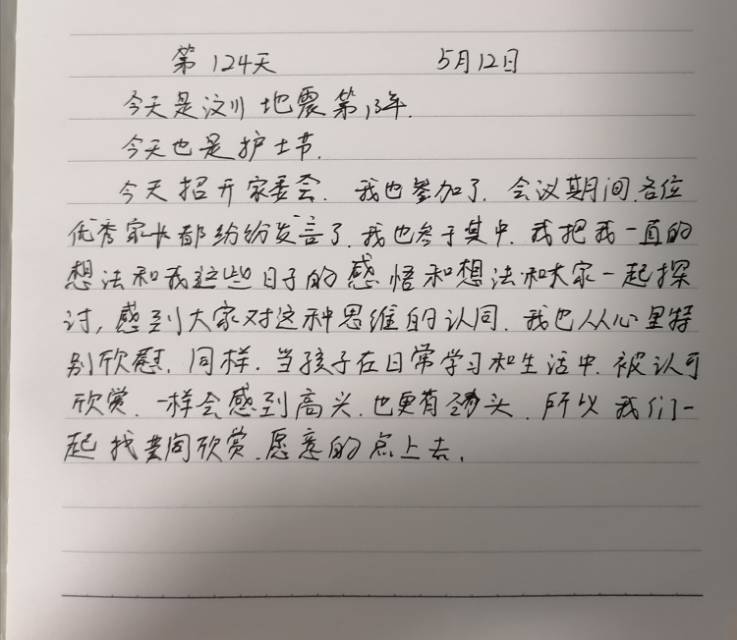 第124天 5月12日
今天是汶川地震第13年.
今天也是护士节.
今天招开家委会.我也参加了.会议期间.各位
优秀家长都纷纷发言了.我也参于其中.我把我一直的
想法和我这些日子的感悟和想法和大家一起探
讨,感到大家对这种思维的认同.我也从心里特
别欣慰.同样.当孩子在日常学习和生活中.被认可
欣赏.一样会感到高兴.也更有劲头.所以我们一
起找共同欣赏.愿意的点上去.